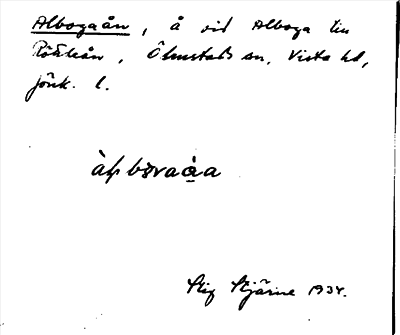 Albogaån, å vid Alboga till
Röttleån, Ölmstads sn, Vista hd,
Jönk. l.
àɫbɔvaàa
Stig Stjärne 1934.